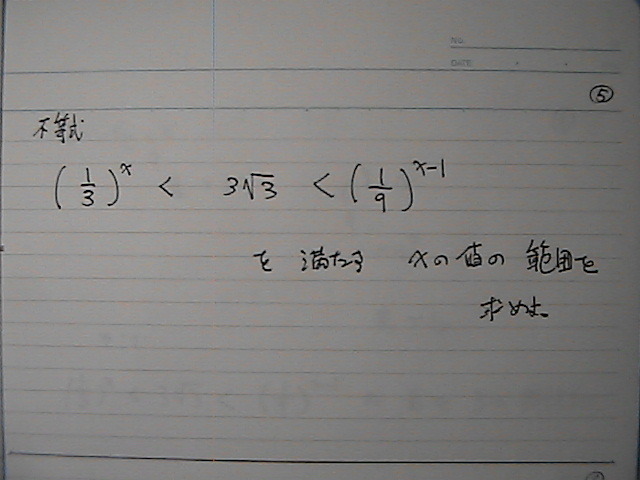 NO.
DATE
⑤
不等式
(1/3)^x < 3√3 < (1/9)^{x-1}
を満たす xの値の範囲を
求めよ。